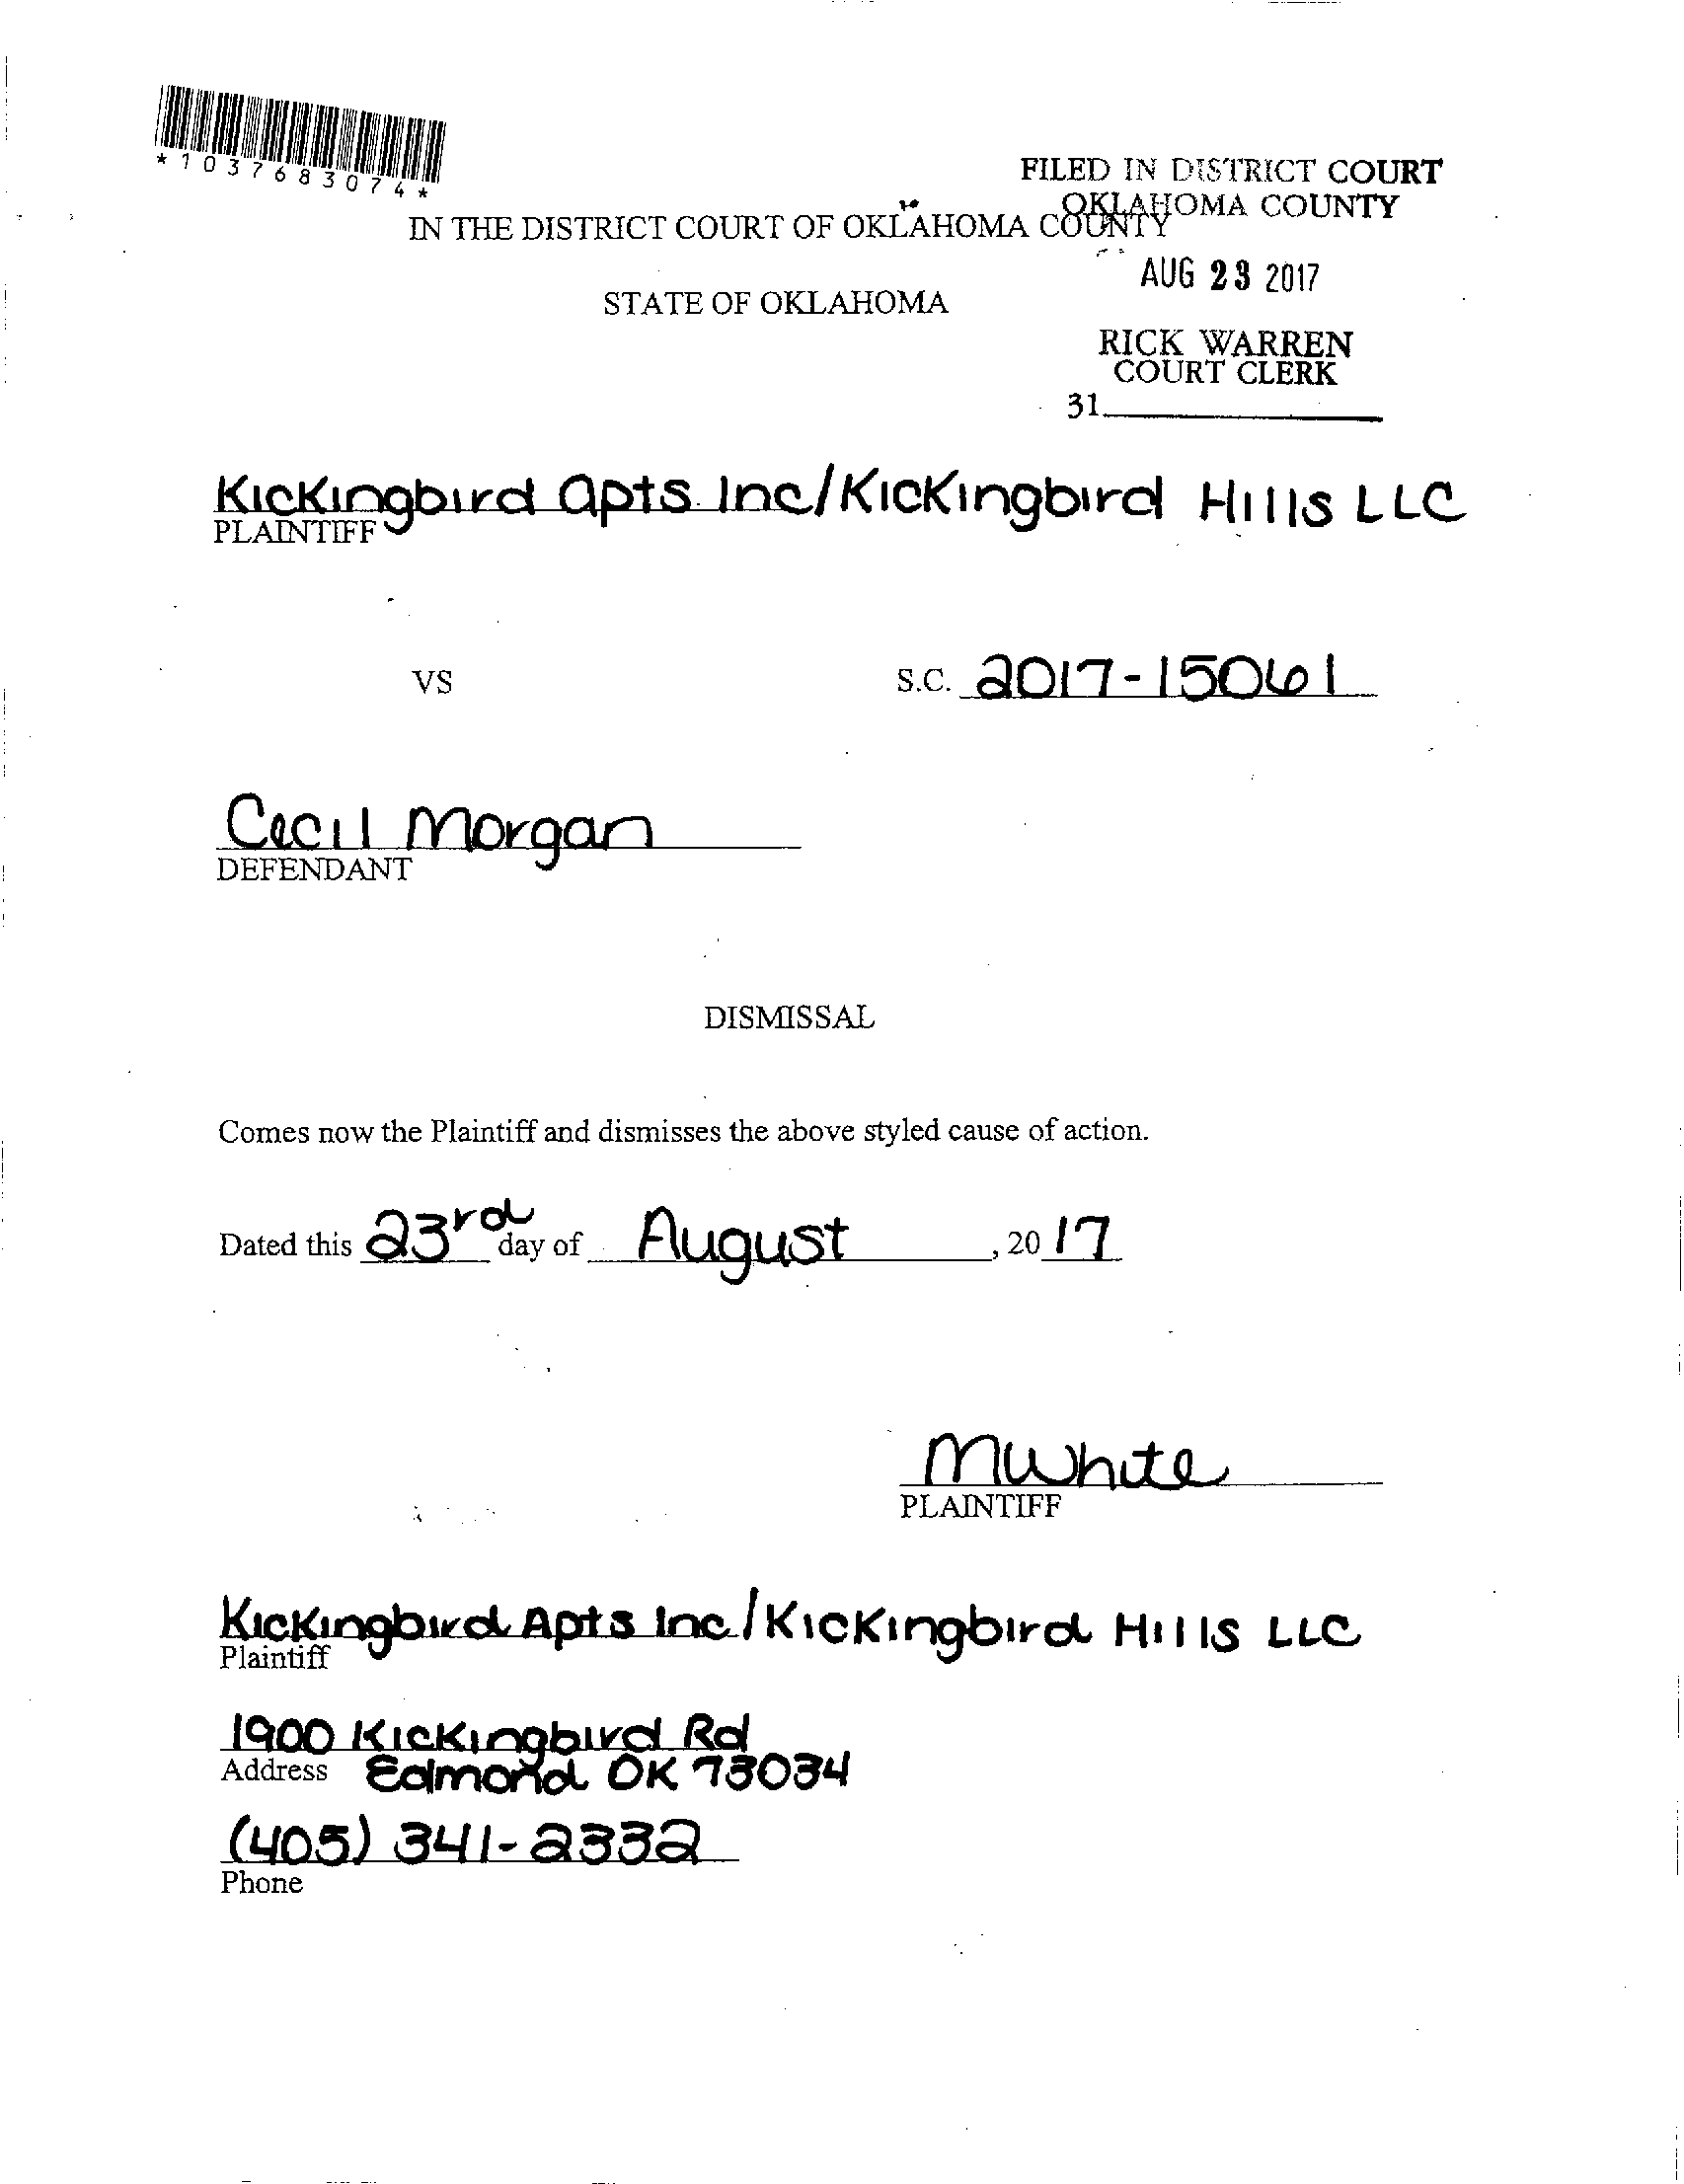 *1037683074*
FILED IN DISTRICT COURT
OKLAHOMA COUNTY
IN THE DISTRICT COURT OF OKLAHOMA COUNTY
AUG 23 2017
STATE OF OKLAHOMA
RICK WARREN
COURT CLERK
31
Kickingbird Apts Inc/Kickingbird Hills LLC
PLAINTIFF
VS S.C. 2017-15061
Cecil Morgan
DEFENDANT
DISMISSAL
Comes now the Plaintiff and dismisses the above styled cause of action.
Dated this 23rd day of August, 20 17
MWhite
PLAINTIFF
Kickingbird Apts Inc/Kickingbird Hills LLC
Plaintiff
1900 Kickingbird Rd
Address Edmond OK 73034
(405) 341-2332
Phone